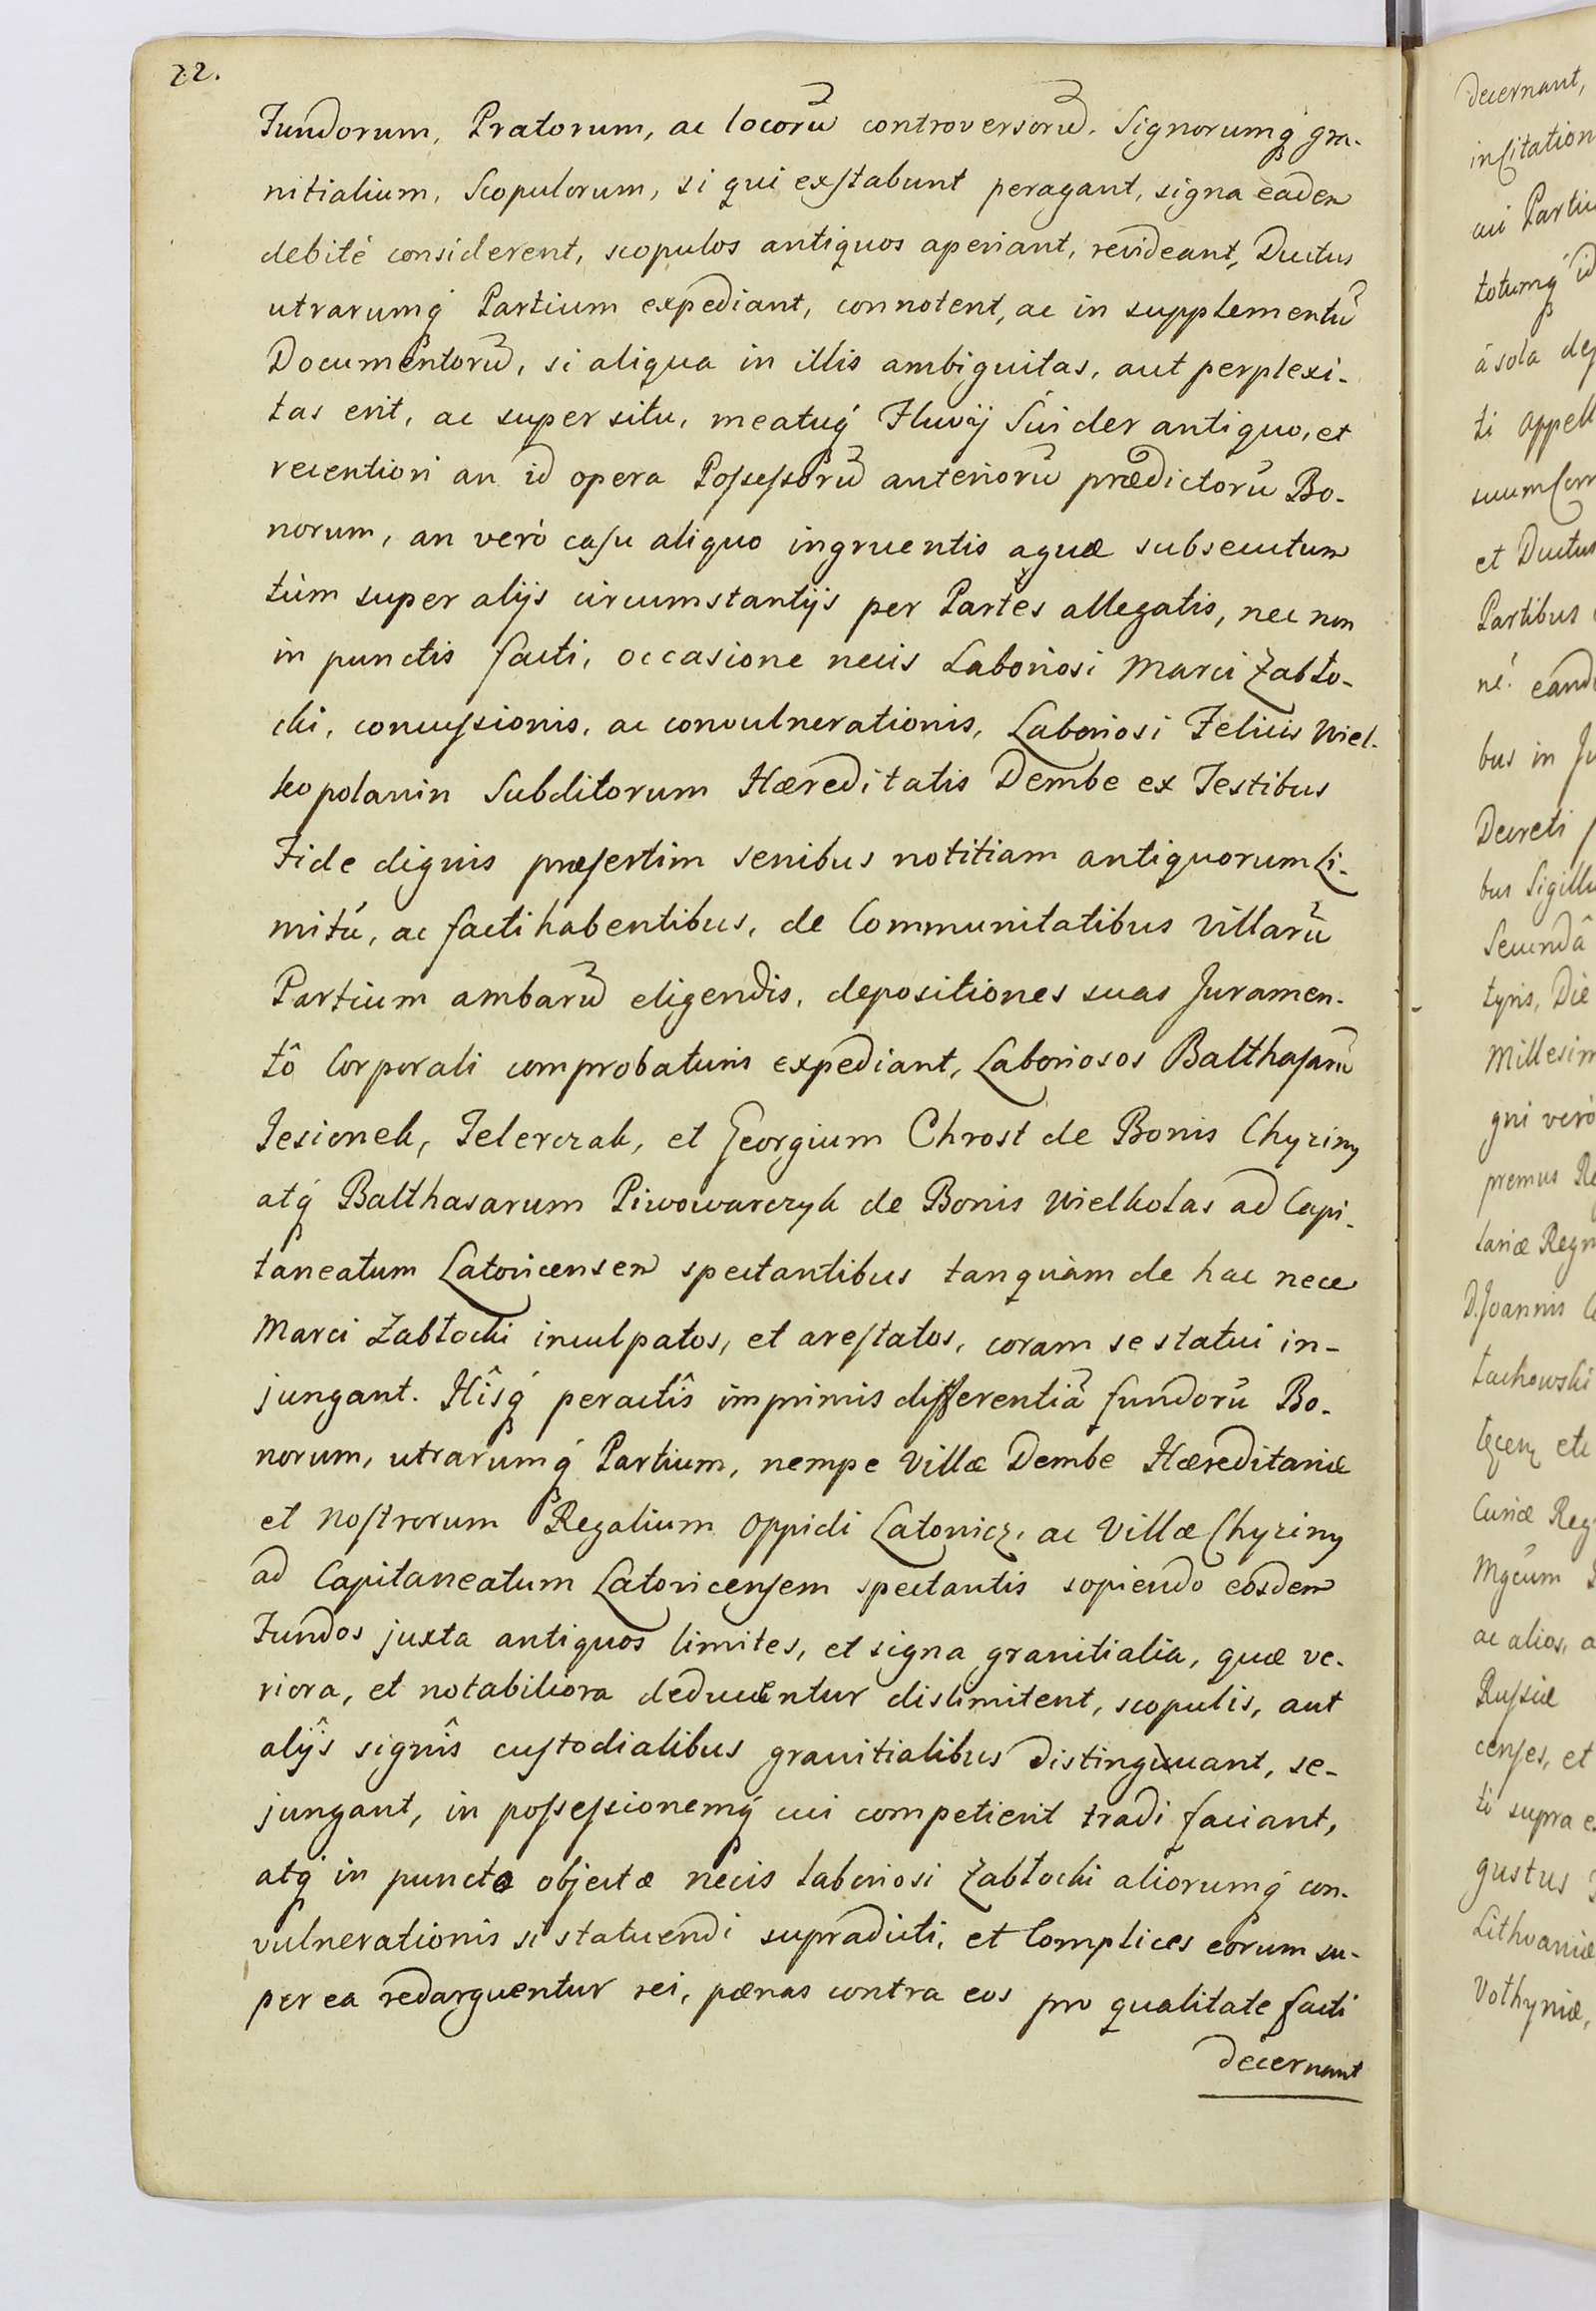 22.
Fundorum, Pratorum, ac locorũ controversorũ, Signorumq́ gra-
nitialium, Scopulorum, si qui exstabunt peragant, signa eadem
debité considerent, scopulos antiquos aperiant, revideant, Ductus
utrarumq́ Partium expediant, connotent, ac in supplementũ
Documentorũ, si aliqua in illis ambiguitas, aut perplexi-
tas erit, ac super situ, meatuq́ Fluvij Suider antiquo, et
recentiori an id opera Possessorũ anteriorũ prædictorũ Bo-
norum, an verò casu aliquo ingruentis aquæ subsecutum
tùm super alijs circumstantijs per Partes allegatis, nec non
in punctis facti, occasione necis Laboriosi Marci Zabło-
cki, concussionis, ac convulnerationis, Laboriosi Felicis Wiel-
kopolanin Subditorum Hæreditatis Dembe ex Testibus
Fide dignis præsertim senibus notitiam antiquorum Li-
mitũ, ac facti habentibus, de Communitatibus Villarũ
Partium ambarũ eligendis, depositiones suas Juramen-
tô Corporali comprobaturis expediant, Laboriosos Balthasarũ
Jesionek, Felerczak, et Georgium Chrost de Bonis Chyziny
atq́ Balthasarum Piwowarczyk de Bonis Wielkolas ad Capi-
taneatum Latovicensem spectantibus tanquàm de hac nece
Marci Zabłocki inculpatos, et arestatos, coram se statui in-
jungant. Hîsq́ peractîs imprimis differentiã fundorũ Bo-
norum, utrarumq́ Partium, nempe Villæ Dembe Hæreditariæ
et Nostrorum Regalium Oppidi Latowicz, ac Villæ Chyziny
ad Capitaneatum Latovicensem spectantis sopiendo eosdem
Fundos juxta antiquos limites, et signa granitialia, quæ ve-
riora, et notabiliora deducentur dislimitent, scopulis, aut
alijs signîs custodialibus granitialibus distinguant, se-
jungant, in possessionemq́ cui competierit tradi faciant,
atq́ in puncto objectæ necis laboriosi Zabłocki aliorumq́ con-
vulnerationis si statuendi supradicti, et Complices eorum su-
per ea redarguentur rei, pænas contra eos pro qualitate facti
decernant
decernant,
totumq́ id
â sola
ti
et Ductus
Partibus
bus in
Decreti
Die
gni verò
premus
D. Joannis
Curiæ
ac alios,
Russiæ
censes, et
ti supra
gustus
Lithvaniæ
Volhyniæ,